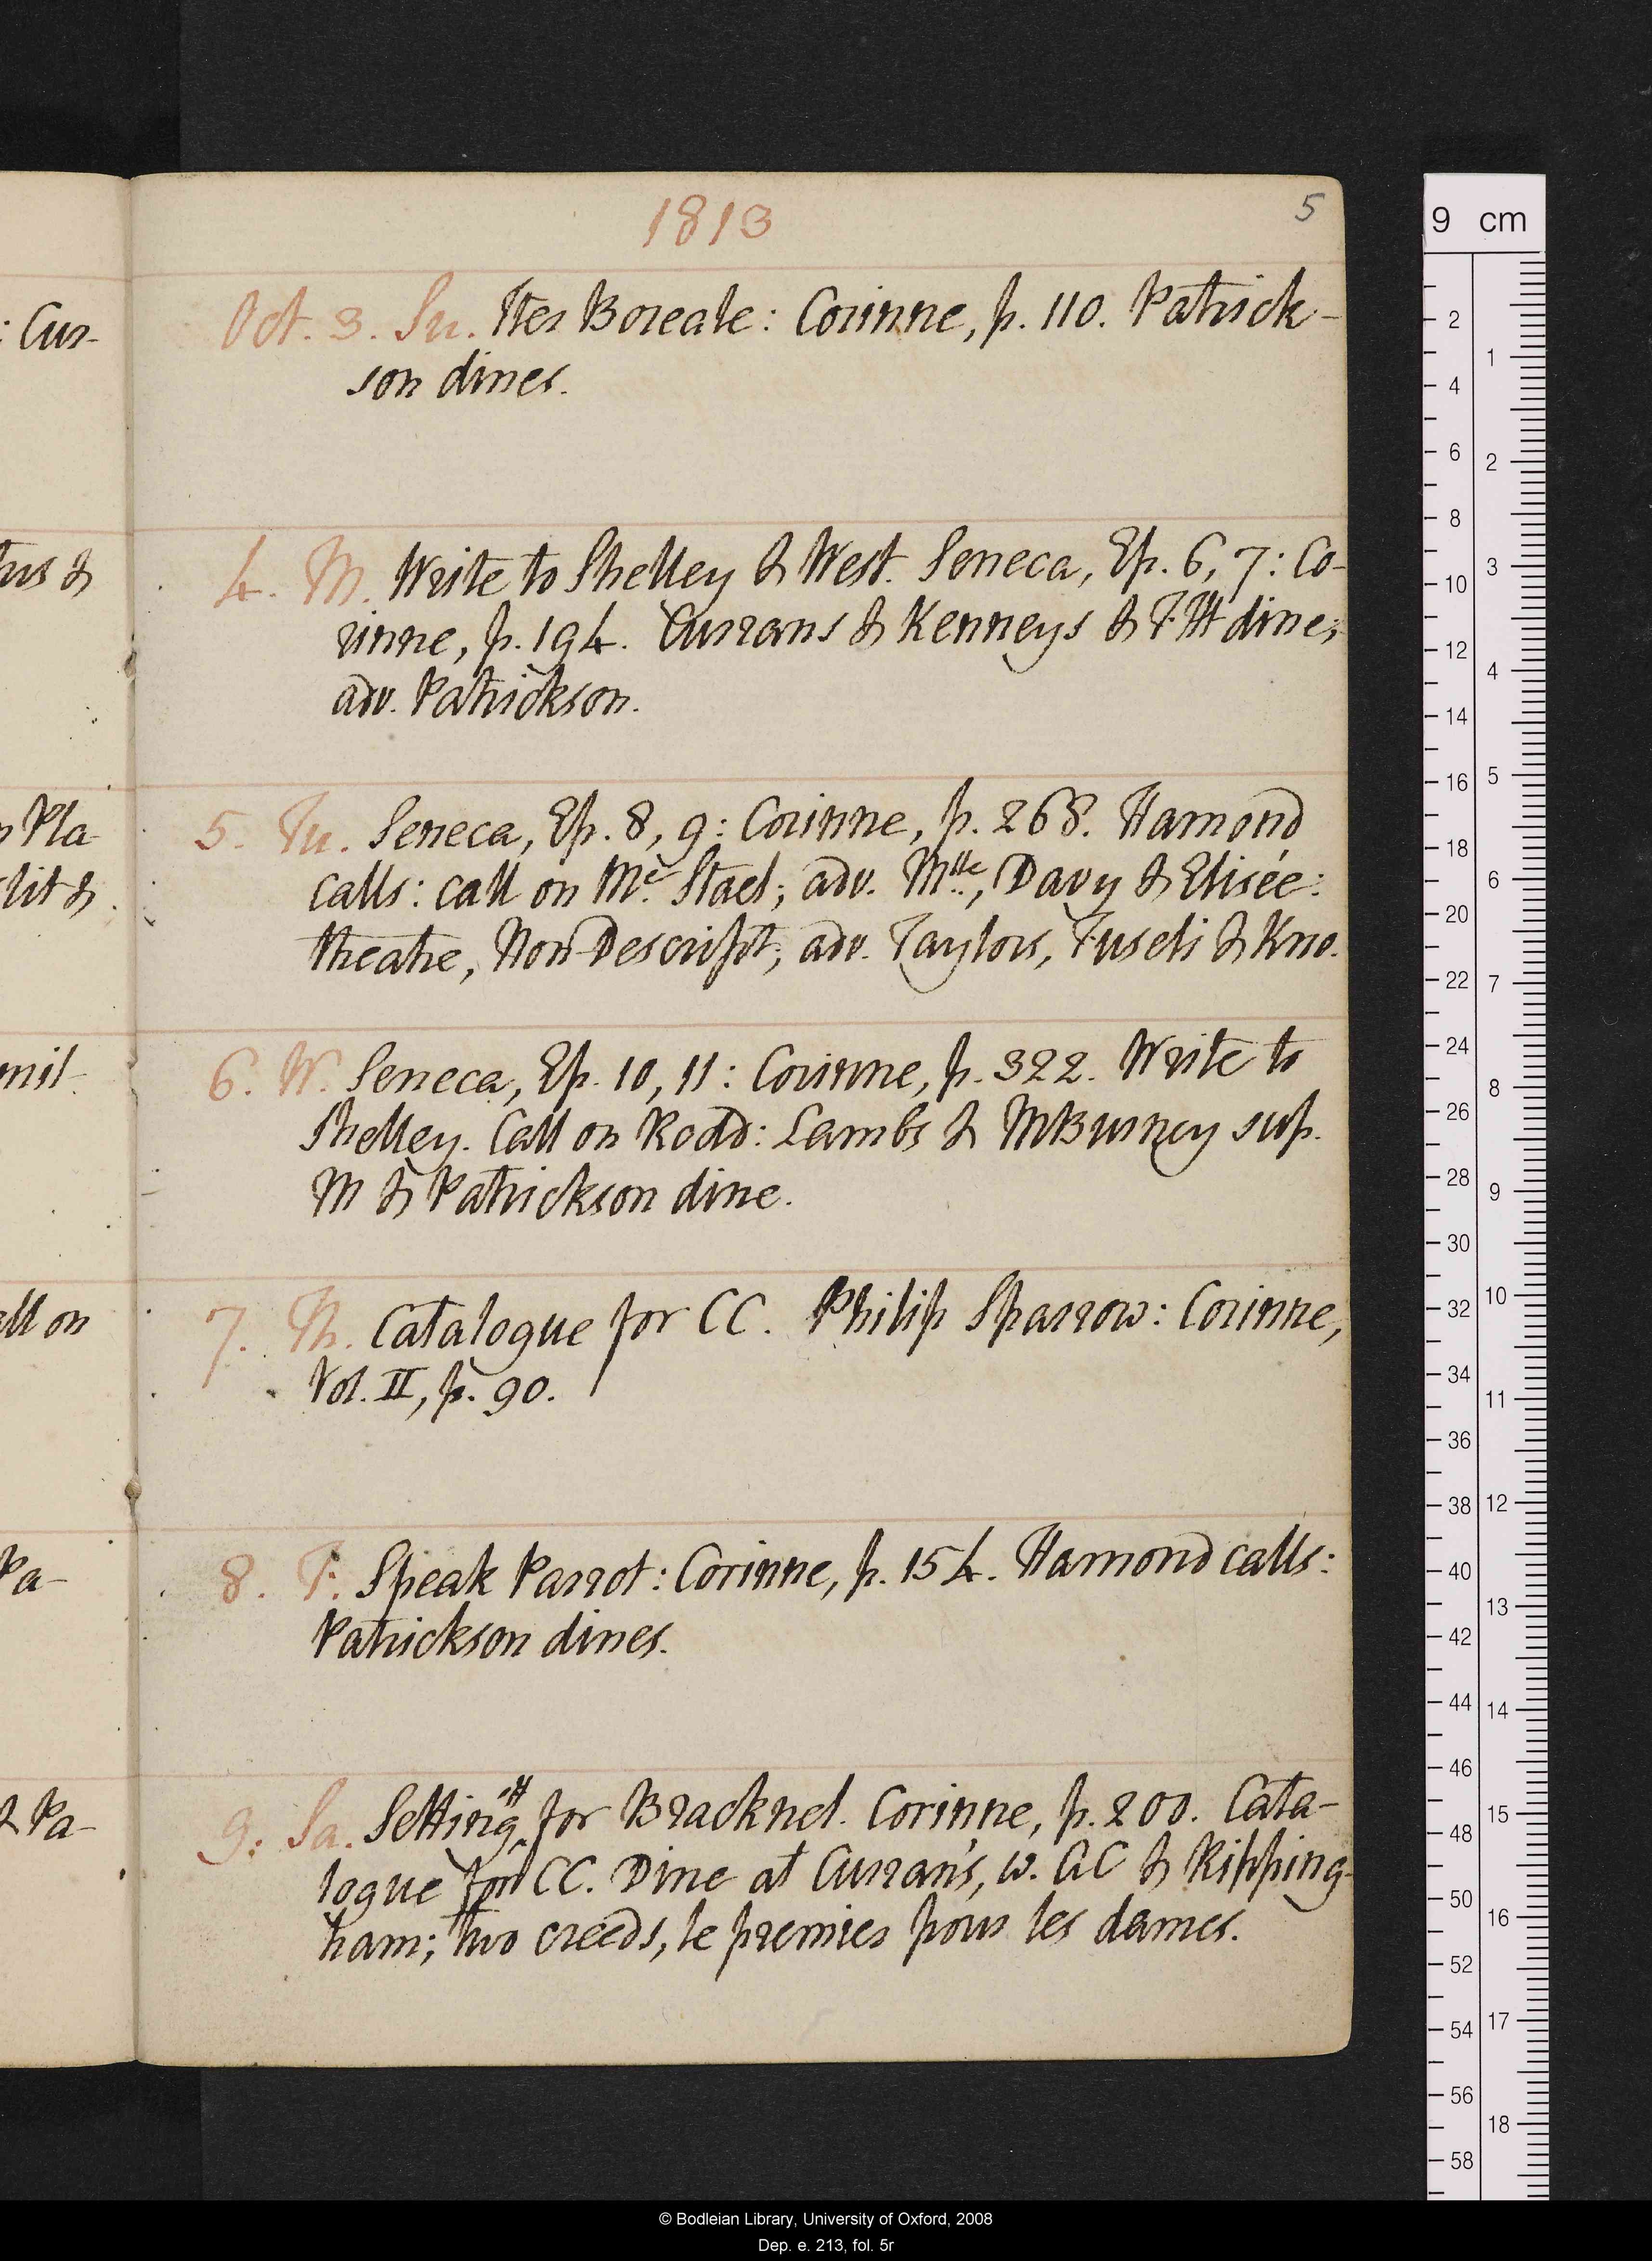 1813
5
Oct. 3. Su. Iter Boreale: Corinne, p. 110. Patrick-
son dines.
4. M. Write to Shelley & West. Seneca, Ep. 6, 7: Co-
rinne, p. 194. Currans & Kenneys & T.H dine;
adv. Patrickson.
5. Tu. Seneca, Ep. 8, 9: Corinne, p. 268. Hamond
calls: call on Me. Stael; adv. Mlle., Davy & Elisée:
theatre, Non-Descript; adv. Taylors, Fuseli & Kno.
6. W. Seneca, Ep. 10, 11: Corinne, p. 322. Write to
Shelley. Call on Rodd: Lambs & MBurney sup.
M & Patrickson dine.
7. Th. Catalogue for CC. Philip Sparrow: Corinne,
Vol. II, p. 90.
8. F. Speak Parrot: Corinne, p. 154. Hamond calls:
Patrickson dines.
9. Sa. Setting for Bracknel. Corinne, p. 200. Cata-
logue for CC. Dine at Curran's, w. AC & Ripping-
ham; two creeds, le premier pour les dames.
: Cur-
tus &
Pla-
lit &
mil-
all on
Pa-
& Pa-
9 cm
2
4
6
8
10
12
14
16
18
20
22
24
26
28
30
32
34
36
38
40
42
44
46
48
50
52
54
56
58
1
2
3
4
5
6
7
8
9
10
11
12
13
14
15
16
17
18
© Bodleian Library, University of Oxford, 2008
Dep. e. 213, fol. 5r